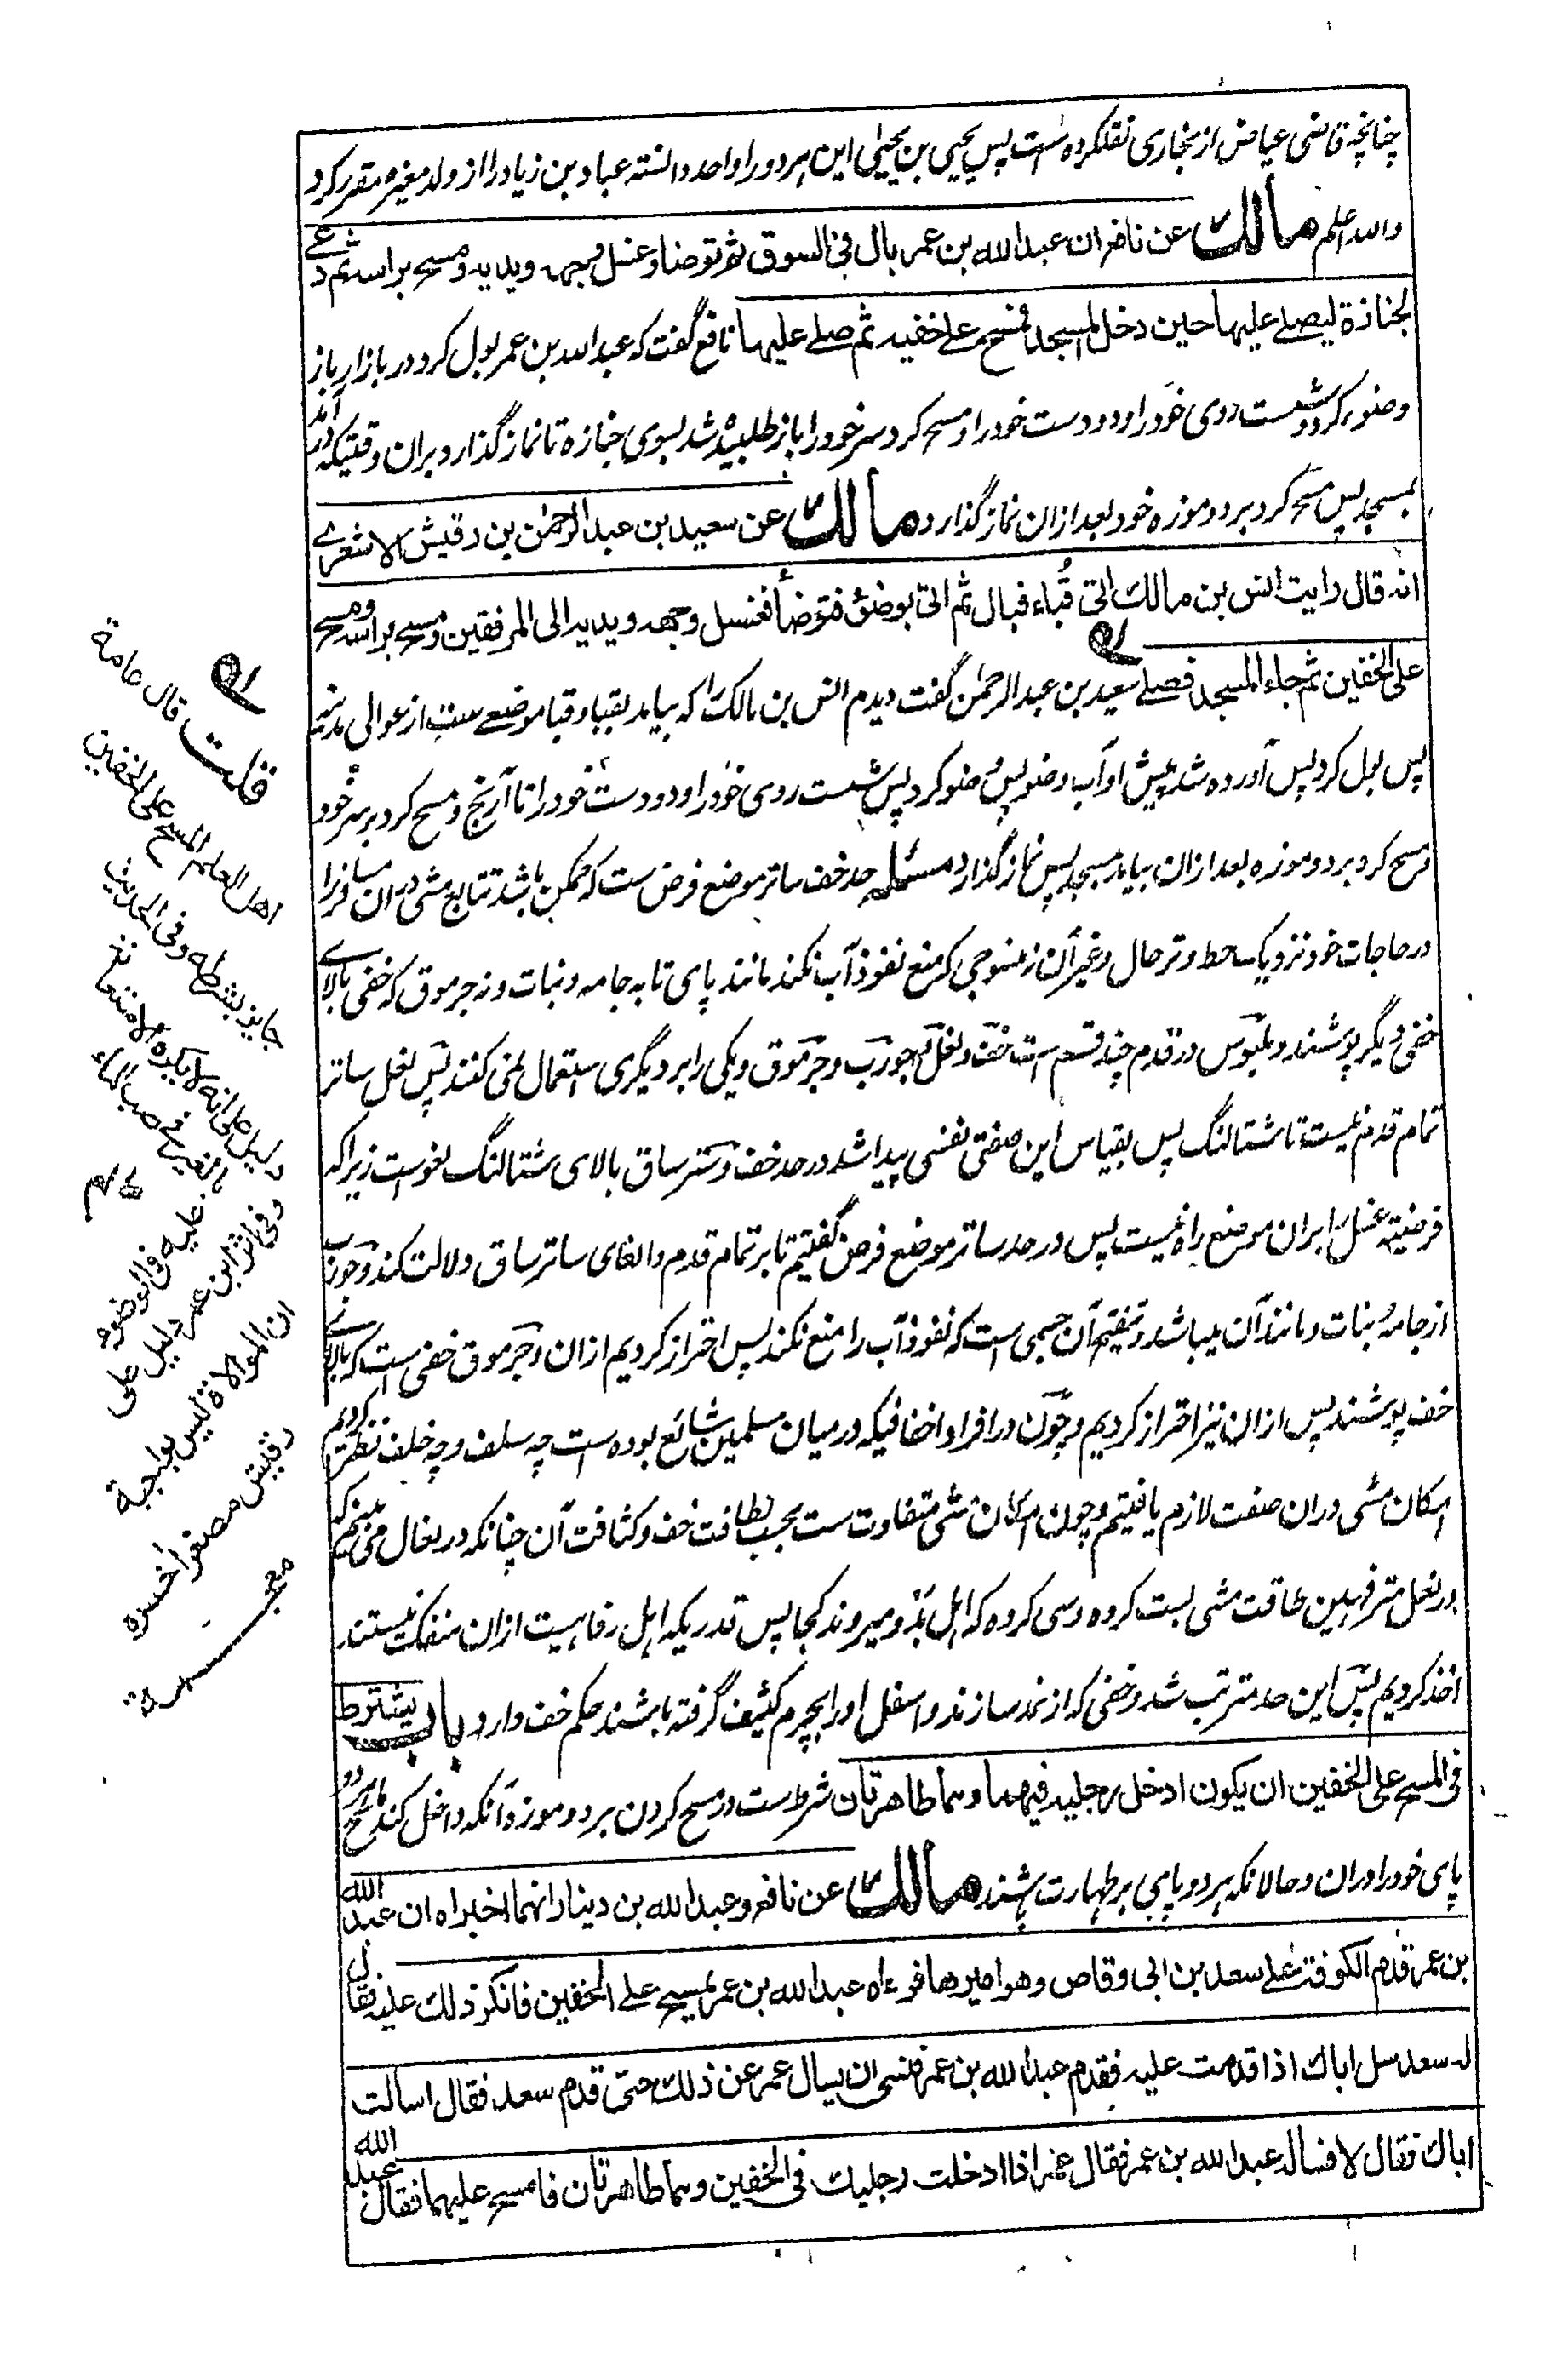 چنانچه قاضی عیاض از بخاری نقلکرده است پس یحیی بن یحییٰ این هر دو را واحد دانسته عباد بن زیاد را از ولد مغیره مقرر کرد
والله اعلم مالک عن نافع ان عبد الله بن عمر بال فی السوق ثم توضا وغسل وجهه ویدیه ومسح براسه ثم دعی
لجنازة لیصلے علیها حین دخل المسجد فمسح علے خفیه ثم صلے علیها نافع گفت که عبد الله بن عمر بول کرد در بازار باز
وضو کرد و شست روی خود را و دو دست خود را و مسح کرد سر خود را باز طلبیده شد بسوی جنازه تا نماز گذارد بران وقتیکه در آمد
بمسجد پس مسح کرد بر دو موزه خود بعد ازان نماز گذارد مالک عن سعید بن عبد الرحمٰن بن رقیش الاشعرے
انه قال رایت انس بن مالک اتی قُباء فبال ثم اتی بوضوء فتوضأ فغسل وجهه ویدیه الی المرفقین ومسح براسه ومسح
علی الخفین ثم جاء المسجد فصلے سعید بن عبد الرحمٰن گفت دیدم انس بن مالک را که بیامد بقبا و قبا موضعے ست از عوالی مدینه
پس بول کرد پس آورده شد پیش او آب وضو پس وضو کرد پس شست روی خود را و دو دست خود را تا آرنج و مسح کرد بر سر خود
و مسح کرد بر دو موزه بعد ازان بیامد مسجد پس نماز گذارد مسئله حد خف ساتر موضع فرض ست که ممکن باشد تتابع مشی در ان مسافر را
در حاجات خود نزدیک حط و ترحال و غیر آن نه منسوجی که منع نفوذ آب نکند مانند پای تابه جامه و نبات و نه جرموق که خفی بالاے
خفی دیگر پوشند و ملبوس در قدم چند قسم ست خف و نعل و جورب و جرموق و یکی را بر دیگری استعمال نمی کنند پس نعل ساتر
تمام قدم نیست تا شتالنگ پس بقیاس این صفتی نفسی پیدا شد در حد خف و ستر ساق بالای شتالنگ لغو ست زیرا که
فرضیت غسل را بران موضع راه نیست پس در حد ساتر موضع فرض گفتیم تا بر تمام قدم و الغای ساتر ساق دلالت کند و جورب
از جامه و نبات و مانند آن میباشد و تفتیح آن جسمی است که نفوذ آب را منع نکند پس احتراز کردیم ازان و جرموق خفی است که بالاے
خف پوشند پس ازان نیز احتراز کردیم و چون در افراد اخفافیکه در میان مسلمین شائع بوده است چه سلف و چه خلف نظر کردیم
امکان مشی دران صفت لازم یافتیم و چون امکان مشی متفاوت ست بحسب لطافت خف و کثافت آن چنانکه در نعال می بینیم که
در نعل مترفهین طاقت مشی بست کروه و سی کروه که اهل بدو میروند کجا پس قدریکه اهل رفاهیت ازان منفک نیستند
اخذ کردیم پس این حد مترتب شد و خفی که از نمد سازند و اسفل او را بچرم کثیف گرفته باشند حکم خف دارد باب یشترط
فی المسح علی الخفین ان یکون ادخل رجلیه فیهما وهما طاهرتان شرط ست در مسح کردن بر دو موزه آنکه داخل کند ماسح هر دو
پای خود را دران و حالانکه هر دو پای بر طهارت باشند مالک عن نافع وعبد الله بن دینار انهما اخبراه ان عبد الله
بن عمر قدم الکوفة علے سعد بن ابی وقاص وهو امیرها فرءاه عبد الله بن عمر یمسح علے الخفین فانکر ذلک علیه فقال
له سعد سل اباک اذا قدمت علیه فقدم عبد الله بن عمر فنسی ان یسال عمر عن ذلک حتی قدم سعد فقال اسالت
اباک فقال لا فساله عبد الله بن عمر فقال عمر اذا ادخلت رجلیک فی الخفین وهما طاهرتان فامسح علیهما فقال عبد الله
قلت قال عامة
اهل العلم المسح علی الخفین
جایز بشرطه وفی الحدیث
دلیل علی انه لا یکره الاستعانة
بالغیر فی صب الماء
علیه فی الوضوء
وفی اثر ابن عمر دلیل علی
ان الموالاة لیس بواجبة
رقیش مصغرا اخره
معجمة